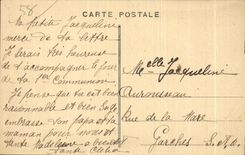 58
CARTE POSTALE
Ma petite Jacqueline
merci de ta lettre
Je serais très heureuse
de t'accompagner le jour de
ta 1ère Communion
Je pense que tu est bien
raisonnable et bien sage
embrasse ton papa et ta
maman pour nous et
tante Madeleine a bientôt
tante
Melle Jacqueline
Rue de la
Garches S.&O.